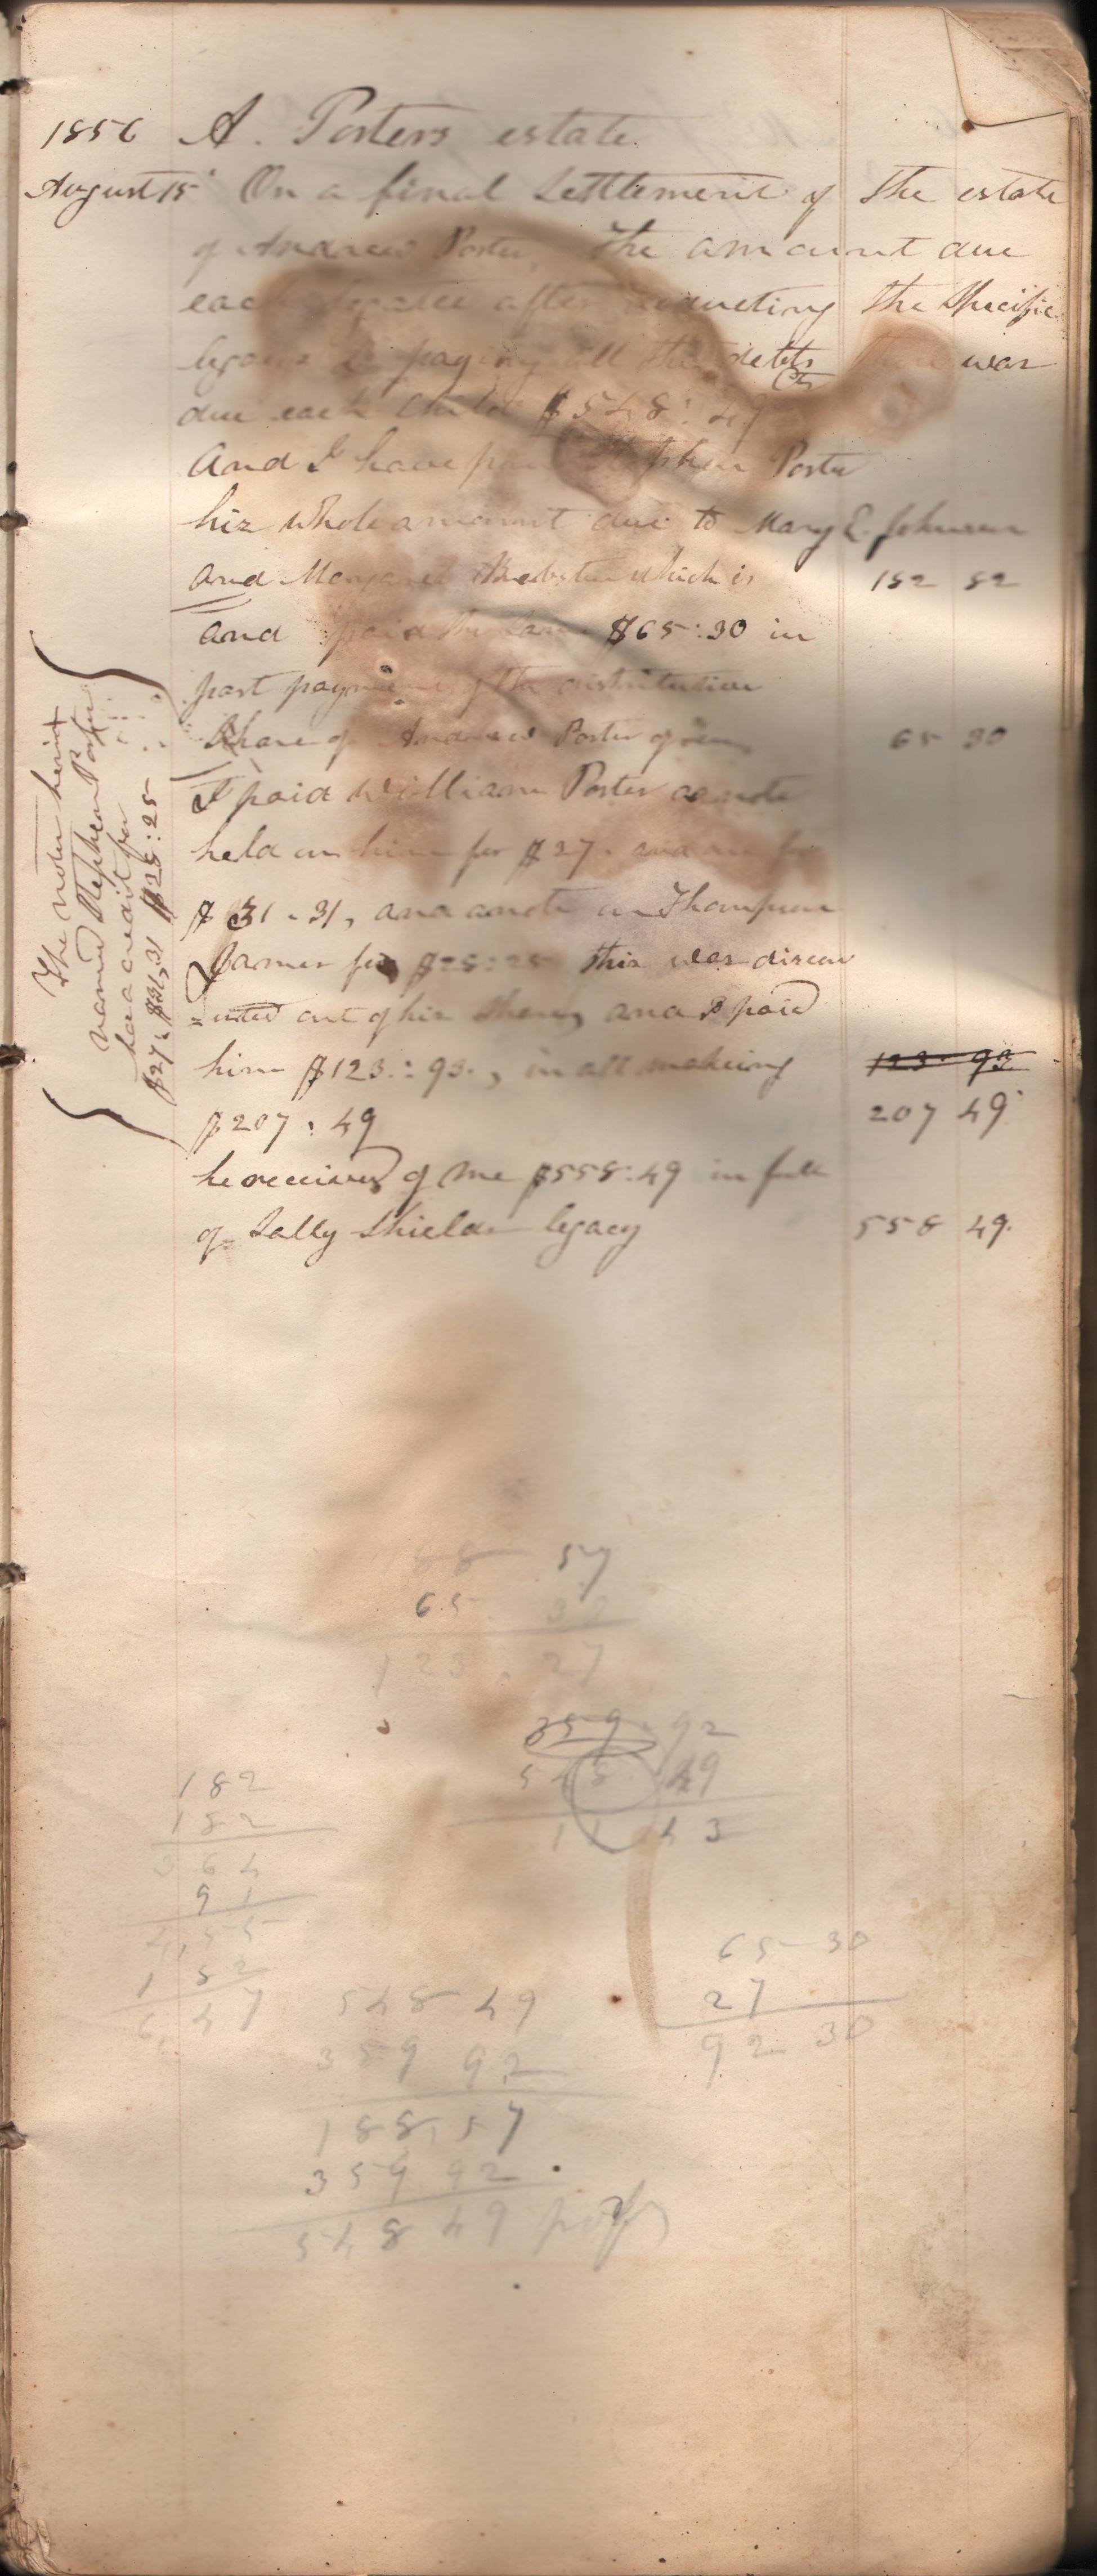 1856 A. Porters estate.
August 15 On a final Settlement of the estate
of Andrew Porter, The amount due
each legatee after deducting the Specific
paying all the debts there was
(cts
due each Child $548:49
And I have paid Stephen Porter
his whole amount due to Mary E. Johnson
and Margaret Webster which is 182 82
and paid the same $65:30 in
part payment of the distributive
Share of Andrew Porter 65 30
I paid William Porter a note
held on him for $27. and one for
$31.31, and a note on Thompson
for $25:25 this was discou
=nted out of his Share, and I paid
him $123:93., in all makeing 123.93
$207:49 207 49
he received of me $558:49 in full
of Sally Shields legacy 558 49.
The notes herein
named Stephen Porter
has a credit for
$27. $31,31 $25:25
88 57
65 30
123.27
359.92
548 49
11 43
182
182
364
91
4,55
182
6,47
65 30
27
92 30
548 49
359 92
188,57
359 92
548 49